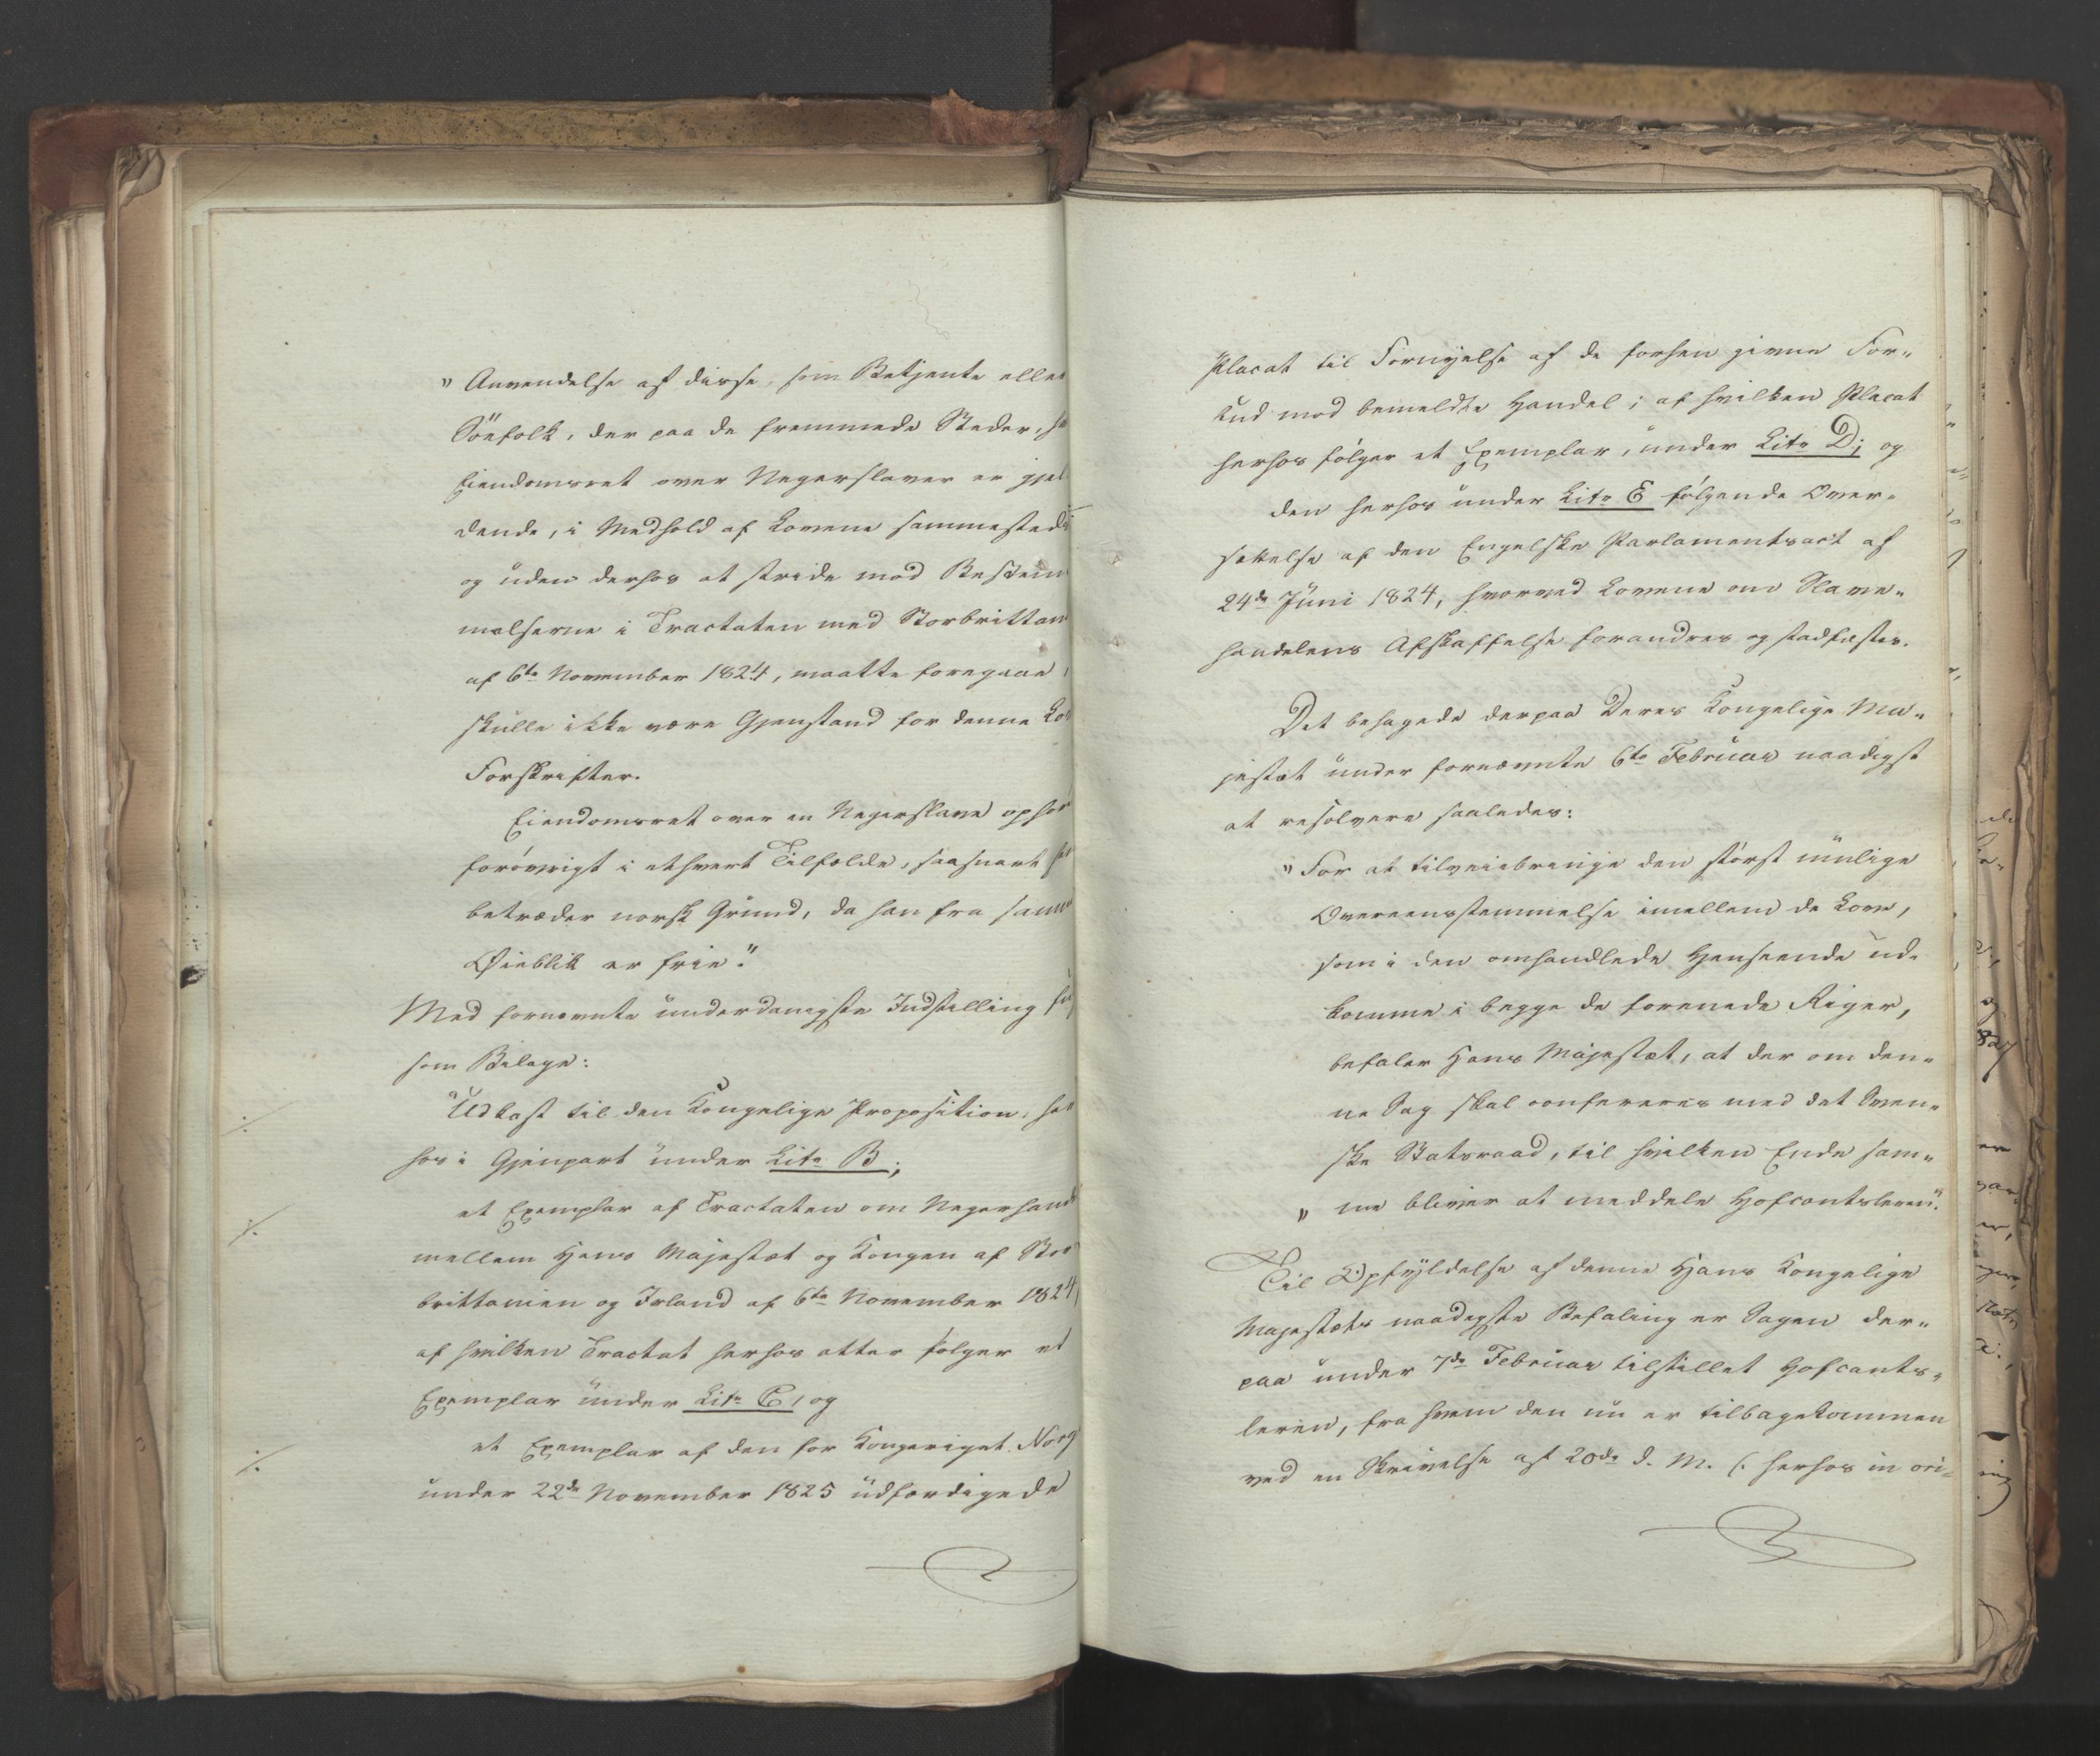 " Anvendelse af disse, som Betjente eller
Söefolk, der paa de fremmede Steder, h
Eiendomsret over Negerslaver er gjel
dende, i Medhold af Lovene sammesteds
og uden derhos at stride mod Bestem
melserne i Tractaten med Storbrittan
af 6te November 1824, maatte foregaae,
skulle ikke være Gjenstand for denne Lov
Forskrifter.
Eiendomsret over en Negerslave ophör
forövrigt i ethvert Tilfælde, saasnart
betræder norsk Grund, da han fra samme
Øieblik er frie."
Med fornævnte underdanigste Indstilling föl
som Bilage:
Udkast til den Kongelige Proposition, her
hos i Gjenpart under Litr B;
et Exemplar af Tractaten om Negerhand
mellem Hans Majestæt og Kongen af Stor
brittanien og Irland af 6te November 1824,
af hvilken Tractat herhos atter følger et
Exemplar under Litr C, og
et Exemplar af den for Kongeriget Norg
under 22de November 1825 udfærdigede
Placat til Fornyelse af de forhen givne For-
bud mod bemeldte Handel; af hvilken Placat
herhos følger et Exemplar, under Litr D; og
den herhos under Litr E følgende Over-
sættelse af den Engelske Parlamentsact af
24de Juni 1824, hvorved Lovene om Slave-
handelens Afskaffelse forandres og stadfæstes.
Det behagede derpaa Deres Kongelige Ma-
jestæt under fornævnte 6te Februar naadigst
at resolvere saaledes:
" For at tilveiebringe den størst mulige
Overeensstemmelse imellem de Love,
som i den omhandlede Henseende ud-
komme i begge de forenede Riger,
befaler Hans Majestæt, at der om den-
ne Sag skal confereres med det Sven-
ske Statsraad, til hvilken Ende sam-
" me bliver at meddele Hofcantsleren."
Til Opfyldelse af denne Hans Kongelige
Majestæts naadigste Befaling er Sagen der-
paa under 7de Februar tilstillet Hofcants-
leren, fra hvem den nu er tilbagekommen
ved en Skrivelse af 20de d. M. (: herhos in ori-